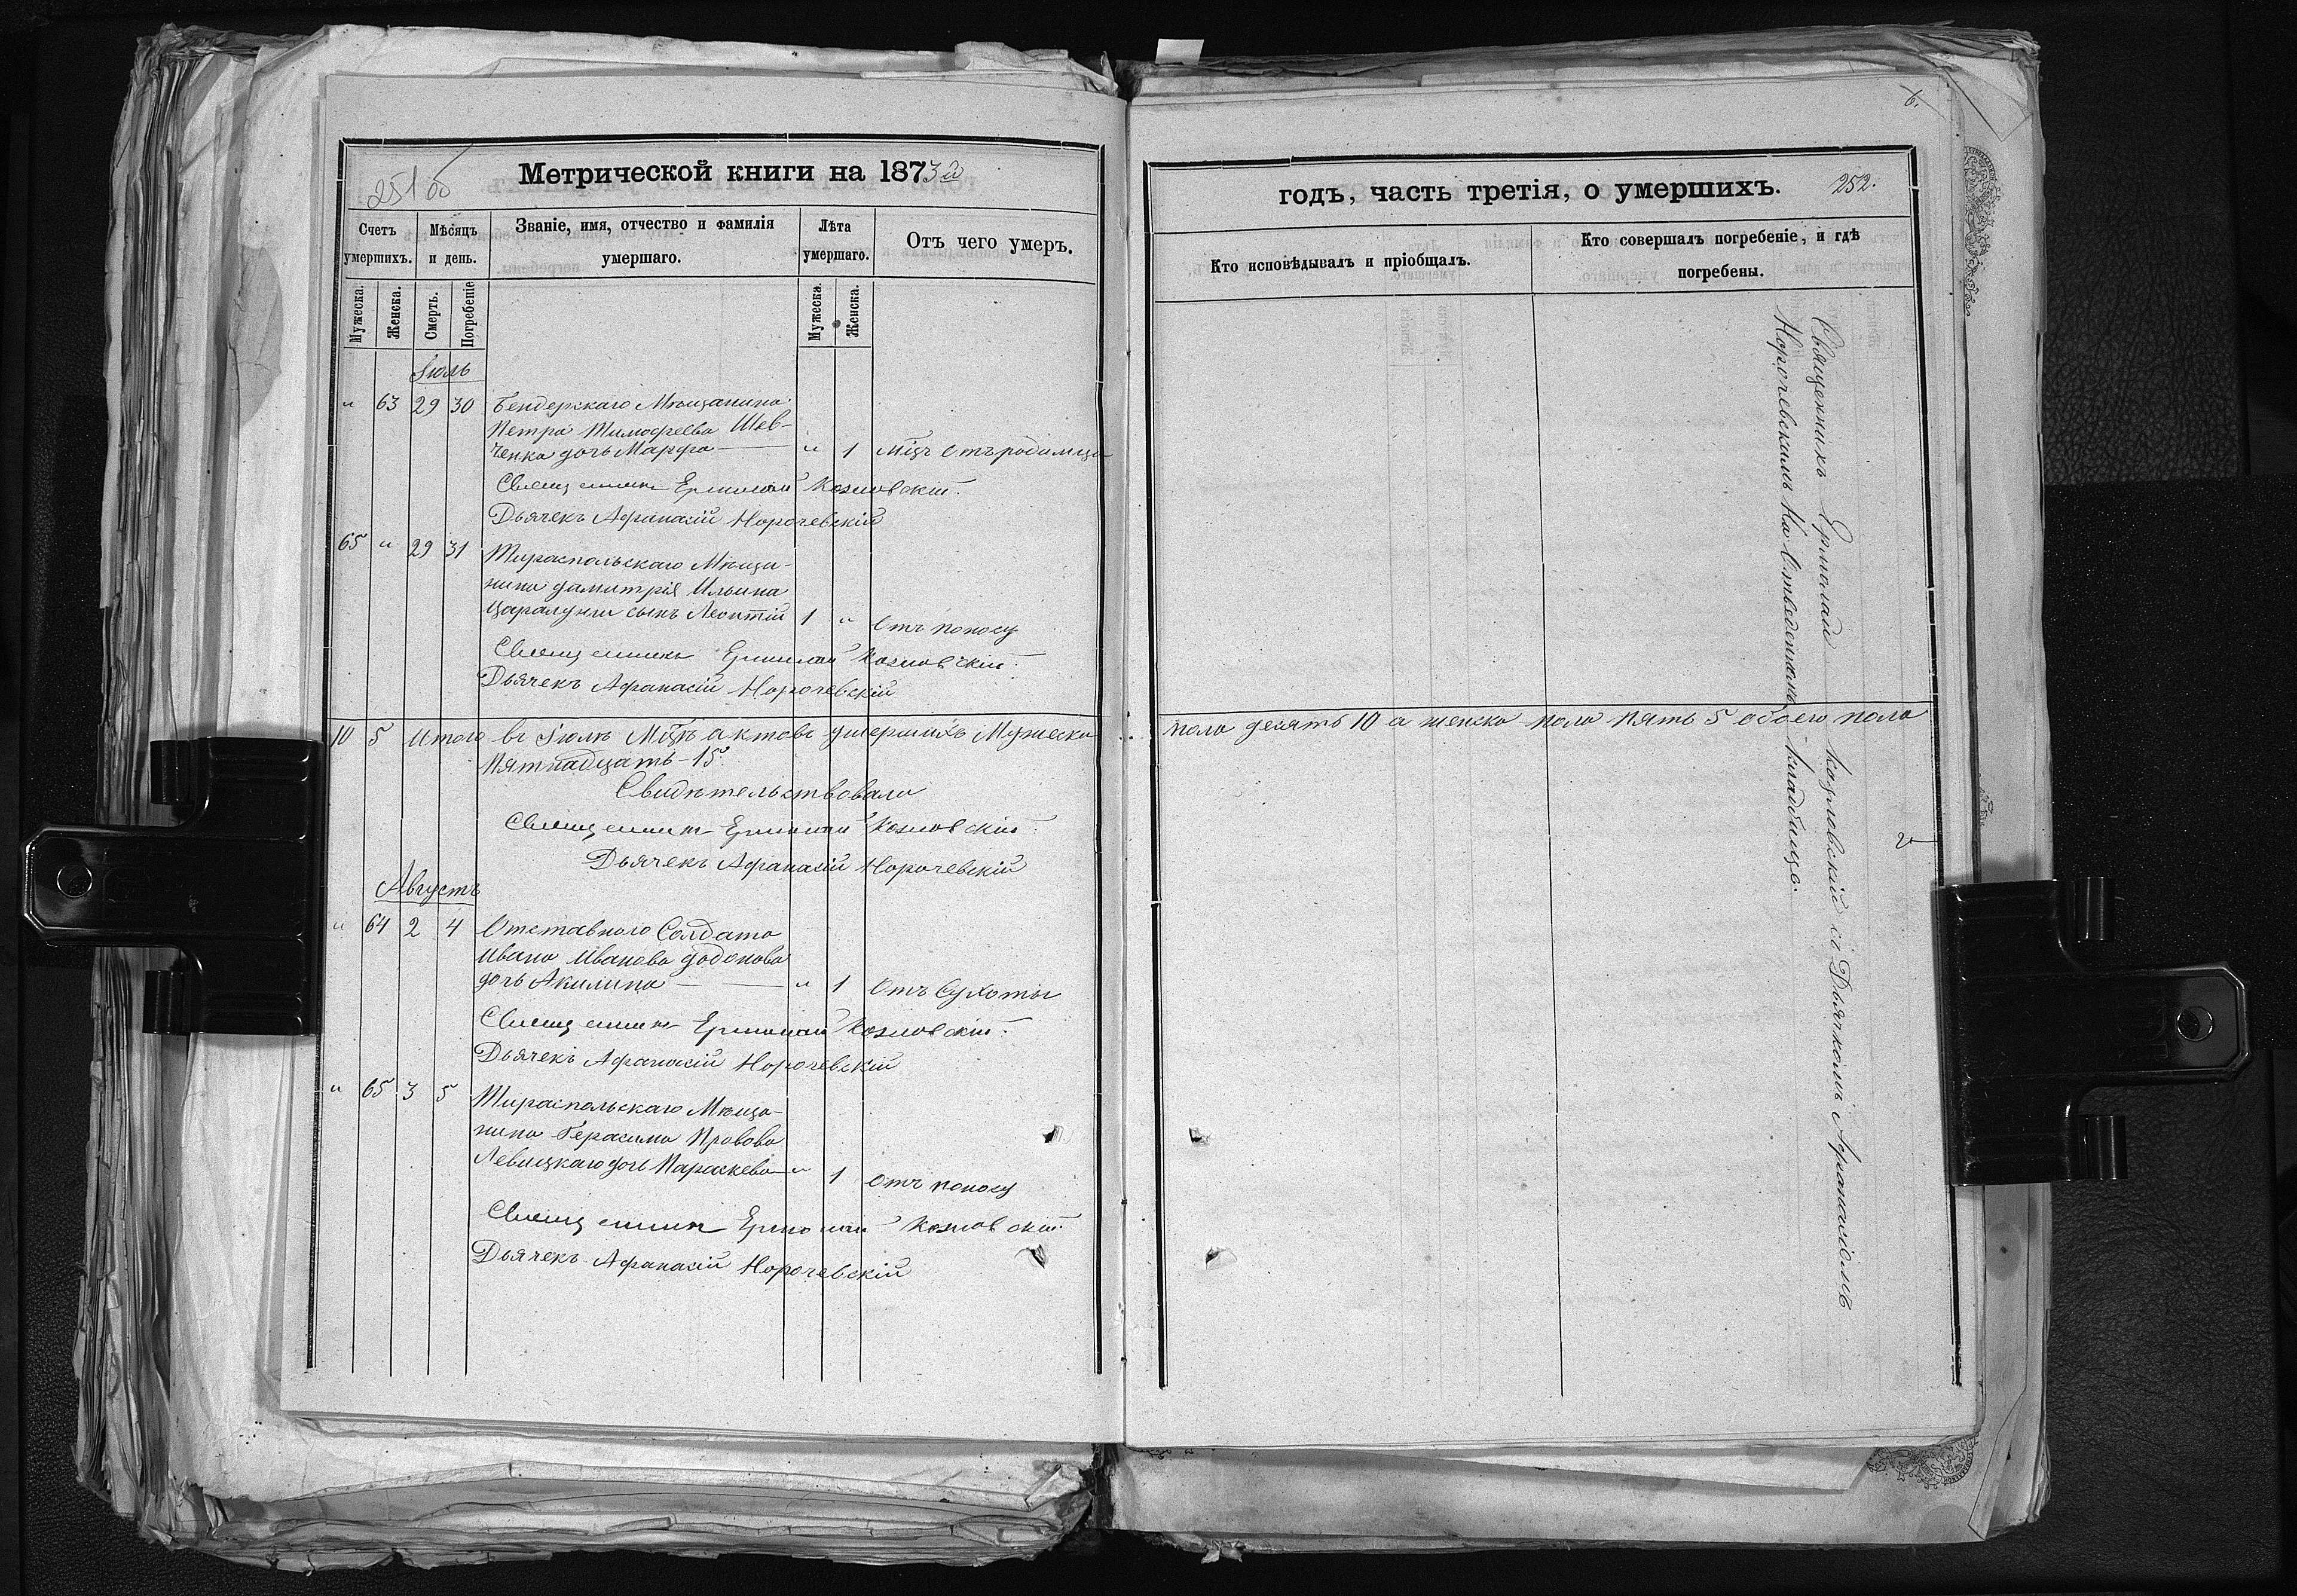 251 об
Метрической книги на 1873й
Счетъ умершихъ.
Мѣсяцъ и день.
Званіе, имя, отчество и фамилія умершаго.
Лѣта умершаго.
Отъ чего умеръ.
Мужеска.
Женска.
Смерть.
Погребеніе
Мужеска.
Женска.
Іюль
" 63 29 30 Бендерскаго Мѣщанина
Петра Тимофеева Шев-
ченка дочь Марфа — " 1 Мцъ Отъ родимца
Священникъ Ермолай Козловскій.
Дьячекъ Афанасій Норочевскій
65 " 29 31 Тираспольскаго Мѣща-
нина Дамитрія Ильина
сынъ Леонтій 1 " Отъ поносу
Священникъ Ермолай Козловскій.
Дьячекъ Афанасій Норочевскій
10 5 Итого въ Іюлѣ Мцѣ актовъ умершихъ Мужеска
Пятнадцать - 15.
Свидѣтельствовали
Священникъ Ермолай Козловскій.
Дьячекъ Афанасій Норочевскій
Августъ
" 64 2 4 Отставного Солдата
Ивана Иванова Додонова
дочь Акилина — " 1 Отъ Сухоты
Священникъ Ермолай Козловскій.
Дьячекъ Афанасій Норочевскій
" 65 3 5 Тираспольскаго Мѣща-
нина Герасима Провова
Левицкаго дочь Параскева " 1 Отъ поносу
Священникъ Ермолай Козловскій.
Дьячекъ Афанасій Норочевскій
6.
годъ, часть третія, о умершихъ. 252.
Кто исповѣдывалъ и пріобщалъ.
Кто совершалъ погребеніе, и гдѣ погребены.
Священникъ Ермолай Козловскій съ Дьячкомъ Афанасіемъ
Норочевскимъ На Отведенномъ кладбищѣ.
пола десять 10 а женска пола пять 5 обоего пола